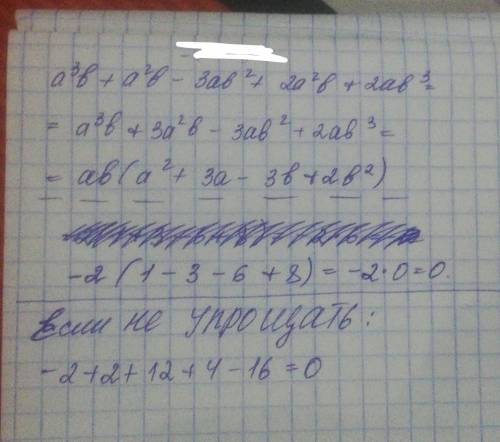 a³b + a²b - 3ab² + 2a²b + 2ab³ =
= a³b + 3a²b - 3ab² + 2ab³ =
= ab(a² + 3a - 3b + 2b²)
-2(1 - 3 - 6 + 8) = -2·0 = 0.
Если не упрощать:
-2+2+12+4-16=0